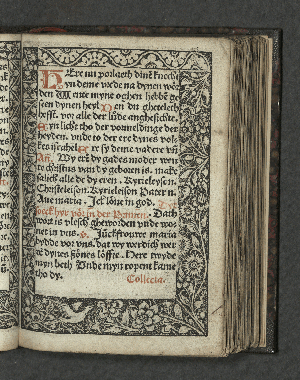 HEre nu vorlaeth dinē knecht
yn deme vrede na dynen wor
den Wente myne oghen hebbē ge
seen dynen heyl Den du ghereteth
hefst. vor alle der lude anghesichte.
Eyn licht tho der vormeldinge der
heyden. vnde to der ere dynes vol⸗
kes israhel Ere sy deme vadere vñ
Añ. Wy erē dy gades moder wen
te christus van dy geboren is. make
salich alle de dy eren. Kyrieleyson.
Christeleison. Kyrieleison Pater n.
Aue maria. Jck loue in god.
Dath
wort is vlesch gheworden vnde wo⸗
net in vns. Juckfrouwe maria
bydde vor vns. dat wy werdich wer
dē dynes sones loffte. Here twyde
myn beth Vnde myn ropent kame
tho dy. Collecta.